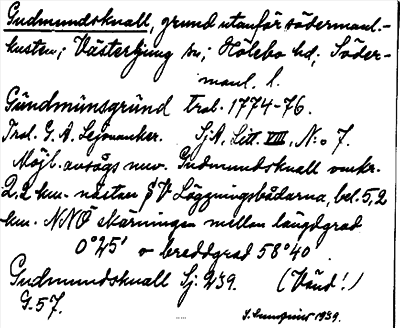 Gudmundsknall, grund utanför södermanl.-
kusten; Västerljung sn; Hölebo hd; Söder-
manl. l.
Gŭndmŭnsgrŭnd trol. 1774-76.
Trol. G. A. Leijonancker. SjA, Litt. VIII, N:o 7.
Möjl. avsågs nuv. Gudmundsknall omkr.
2,2 km. nästan SV Löggningsbådarna, bel. 5,2
km. NNÖ skärningen mellan längdgrad
0°25' o breddgrad 58°40
Gudmundsknall Sj. 239. (Vänd!)
G. 57.
1939.